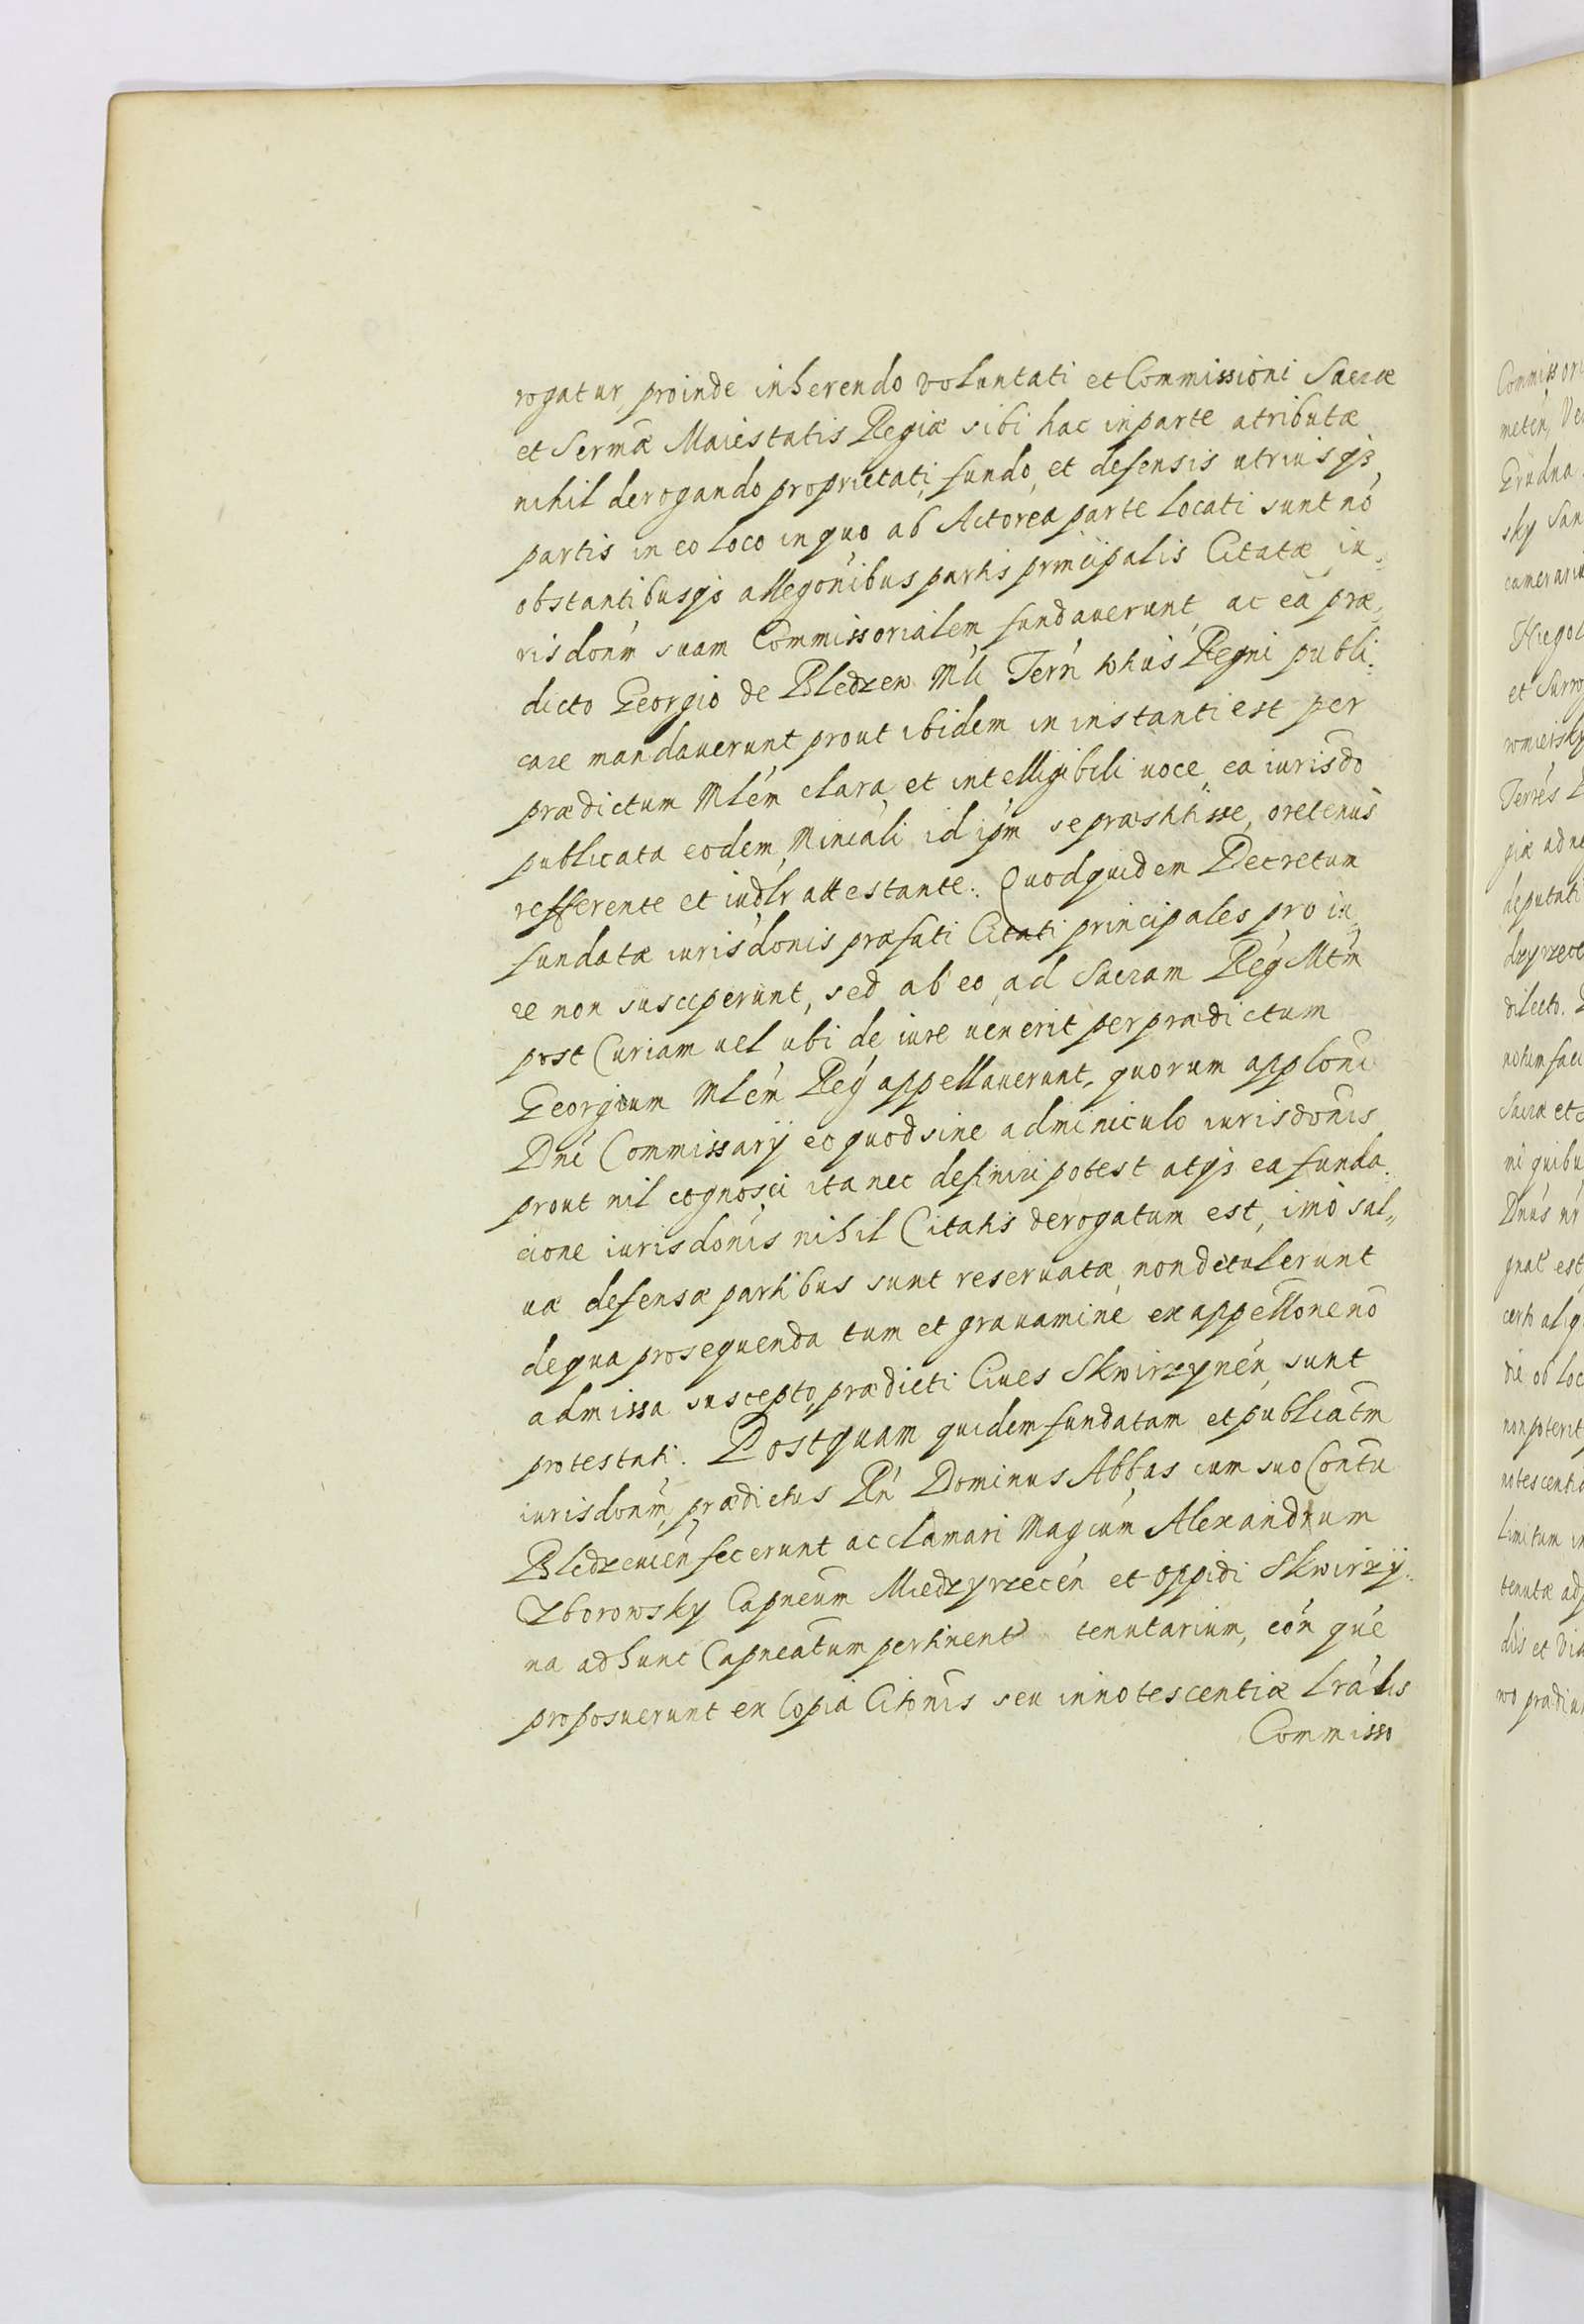 rogatur proinde inherendo voluntati et Commissioni Sacræ
et Sermæ Maiestatis Regiæ sibi hac in parte atributæ
nihil derogando proprietati, fundo, et defensis utriusqз
partis in eo loco in quo ab Actorea parte locati sunt nō
obstantibusqз allegōnibus partis principalis Citatæ iu„
risdōnm suam Commissorialem fundauerunt, ac eā præ„
dicto Georgio de Bledzew Mli Terrn Regni publi:
care mandauerunt prout ibidem in instanti est per
prædictum Mlēm clara et intelligibili uoce ea iurisdō
publicata eodem Mineali id ipm se præstitisse, oretenus
refferente et iudlr attestante. Quodquidem Decretum
fundatæ iurisdōnis præfati Citati principales pro iu„
re non susceperunt, sed ab eo ad Sacram Reg Mtm
post Curiam uel ubi de iure uenerit per prædictum
Georgium Mlēm Reg appellauerunt, quorum applōni
Dni Commissarij eo quod sine adminiculo iurisdōnis
prout nil cognosci ita nec definiri potest atqз ea funda:
cione iurisdōnis nihil Citatis derogatum est, imò sal„
uæ defensæ partibus sunt reseruatæ non detulerunt
de qua prosequenda tum et grauamine ex appellōne nō
admissa suscepto, prædicti Ciues Skwirzynēn, sunt
protestati. Postquam quidem fundatam et publicatm
iurisdōnm, prædictus Rn Dominus Abbas cum suo Contu
Bledzeuien fecerunt acclamari Magcum Alexandrum
Zborowsky Capneum Miedzyrzecēn et oppidi Skwirzy:
na ad hunc Capneatum pertinent tenutarium, eōn quē
proposuerunt ex Copia Citōnis seu innotescentiæ lrālis
Commisso
Commissori
Grudna
sky San
camerariu
et Surro
Terrēs
giæ ad ne
deputati
dilecto.
Sacræ et
ni quibu
Dnus nr
gnat est
die ob loc
non poterit
notescentiæ
limitum in
tenutæ adp